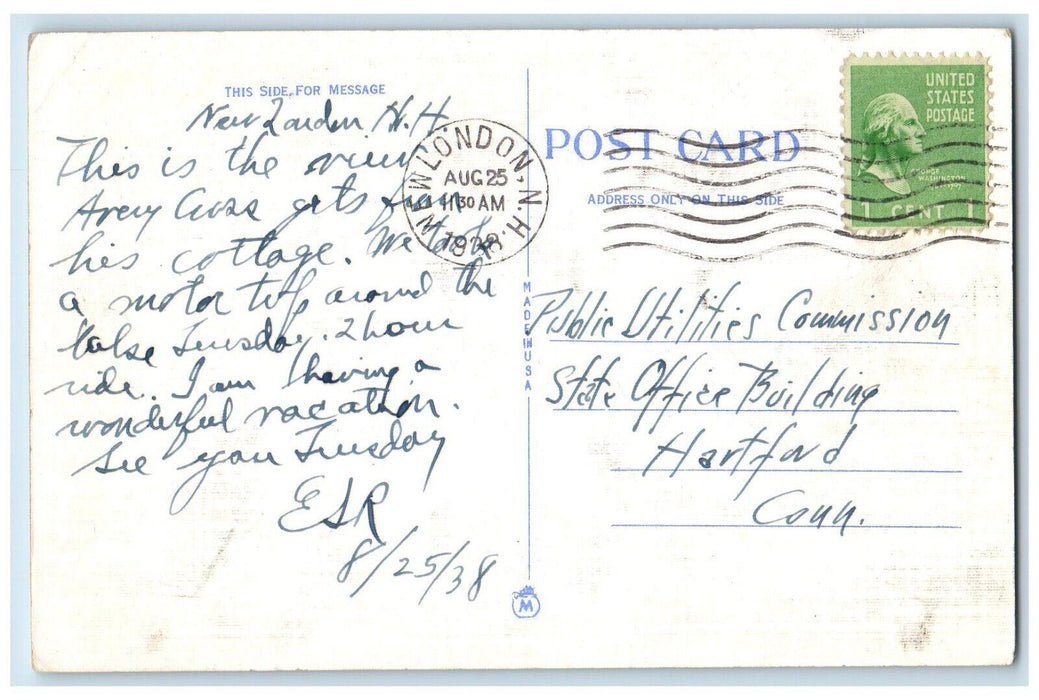 THIS SIDE FOR MESSAGE
New London, N.H.
This is the view
Avery Cross gets from
his cottage. We took
a motor trip around the
lake Tuesday. 2 hour
ride. I am having a
wonderful vacation.
See you Tuesday
ESR
8/25/38
NEW LONDON, N.H.
AUG 25
11 30 AM
1938
POST CARD
ADDRESS ONLY ON THIS SIDE
UNITED
STATES
POSTAGE
GEORGE
WASHINGTON
1 CENT 1
MADE IN USA
Public Utilities Commission
State Office Building
Hartford
Conn.
M